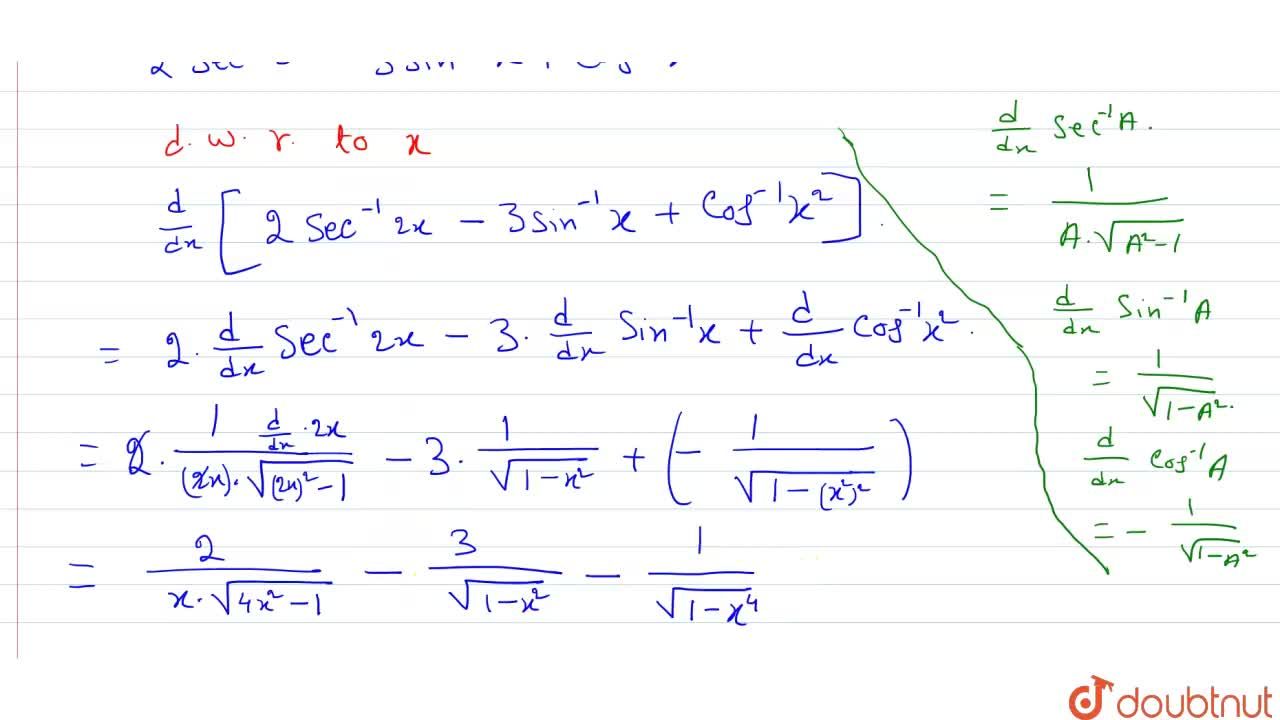 d. w. r. to x
d/dx [2 Sec⁻¹ 2x − 3 sin⁻¹ x + Cos⁻¹ x²].
= 2. d/dx Sec⁻¹ 2x − 3. d/dx Sin⁻¹ x + d/dx Cos⁻¹ x².
= 2. (1 d/dx . 2x)/((2x).√((2x)²−1)) − 3. 1/√(1−x²) + (− 1/√(1−(x²)²))
= 2/(x.√(4x²−1)) − 3/√(1−x²) − 1/√(1−x⁴)
d/dx Sec⁻¹ A.
= 1/(A.√(A²−1))
d/dx Sin⁻¹ A
= 1/√(1−A²).
d/dx Cos⁻¹ A
= − 1/√(1−A²)
doubtnut